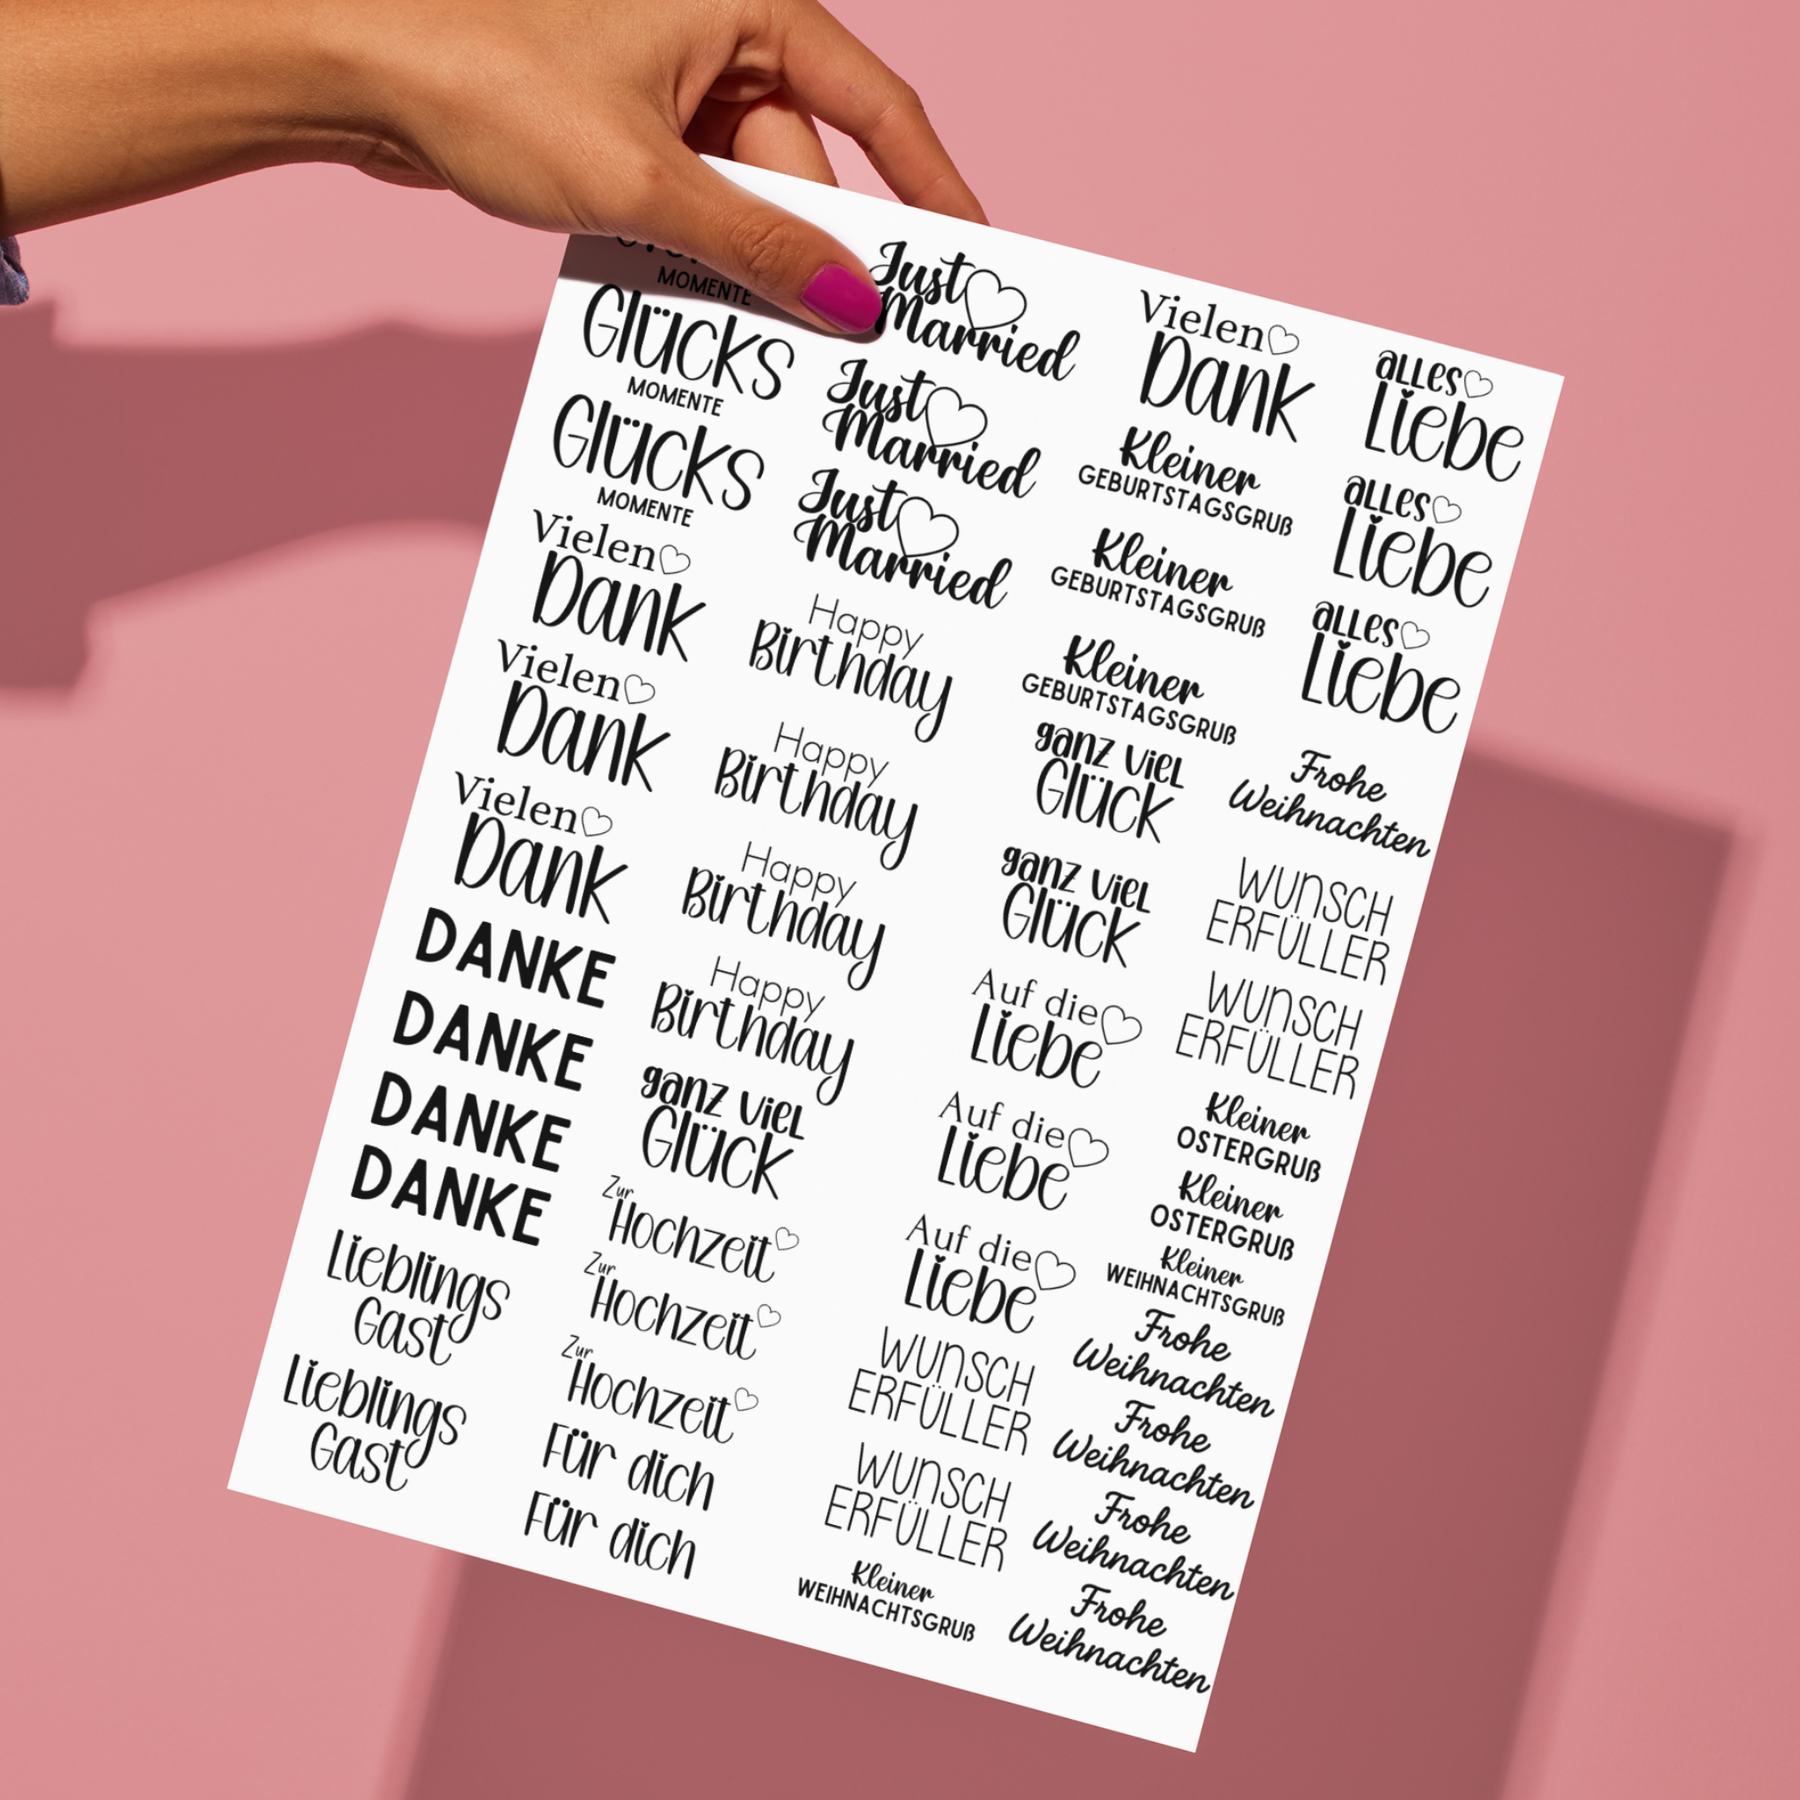 MOMENTE
Glücks
MOMENTE
Glücks
MOMENTE
Vielen
Dank
Vielen
Dank
Vielen
Dank
DANKE
DANKE
DANKE
DANKE
Lieblings
Gast
Lieblings
Gast
Just
Married
Just
Married
Just
Married
Happy
Birthday
Happy
Birthday
Happy
Birthday
Happy
Birthday
ganz viel
Glück
Zur
Hochzeit
Zur
Hochzeit
Zur
Hochzeit
Für dich
Für dich
Vielen
Dank
Kleiner
GEBURTSTAGSGRUß
Kleiner
GEBURTSTAGSGRUß
Kleiner
GEBURTSTAGSGRUß
ganz viel
Glück
ganz viel
Glück
Auf die
Liebe
Auf die
Liebe
Auf die
Liebe
WUNSCH
ERFÜLLER
WUNSCH
ERFÜLLER
Kleiner
WEIHNACHTSGRUß
alles
Liebe
alles
Liebe
alles
Liebe
Frohe
Weihnachten
WUNSCH
ERFÜLLER
WUNSCH
ERFÜLLER
Kleiner
OSTERGRUß
Kleiner
OSTERGRUß
Kleiner
WEIHNACHTSGRUß
Frohe
Weihnachten
Frohe
Weihnachten
Frohe
Weihnachten
Frohe
Weihnachten